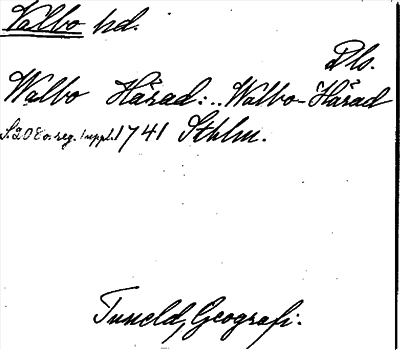 Valbo hd.
Dls.
Walbo Härad: .. Walbo-Härad
S. 208 o. reg. (suppl.) 1741 Sthlm.
Tuneld, Geografi.